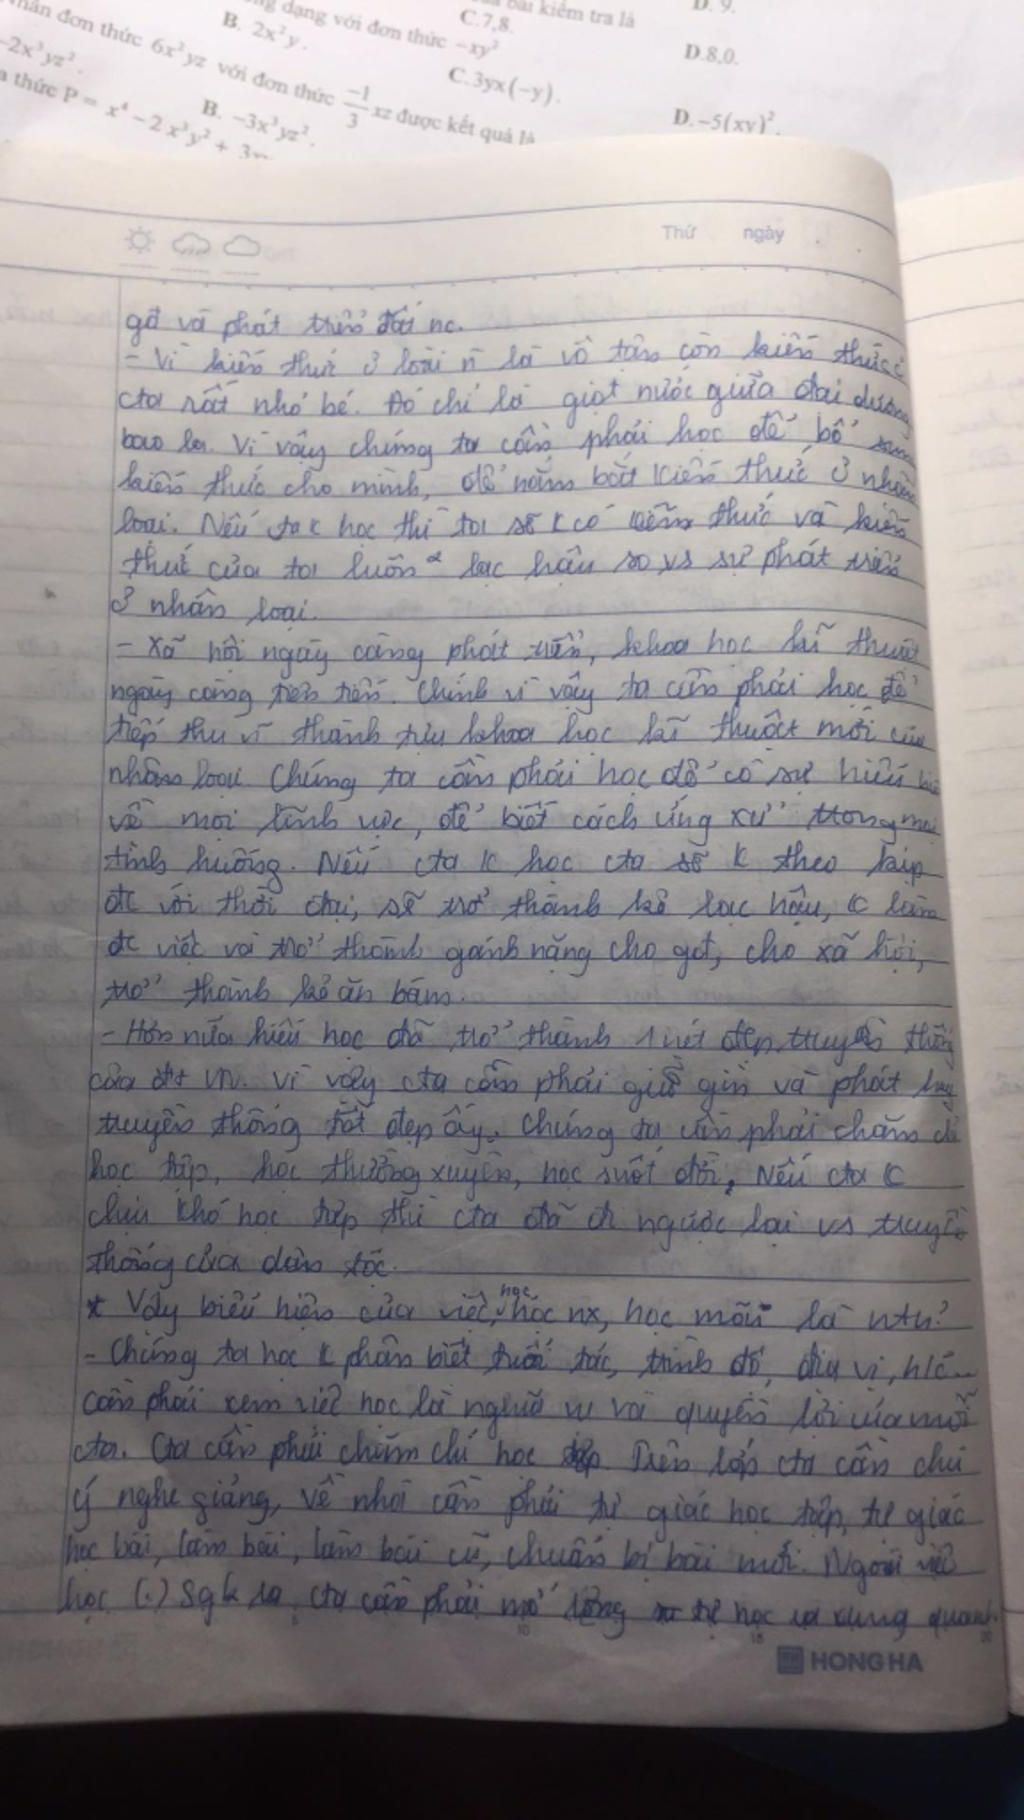 bài kiểm tra là
D. 9.
dạng với đơn thức -xy²
C.7,8.
D.8,0.
B. 2x²y.
C.3yx(-y).
D.-5(xy)².
đơn thức 6x²yz với đơn thức -1/3 xz được kết quả là
-2x³yz².
B. -3x³yz².
thức P = x⁴ - 2x³y² + 3x
Thứ ngày
gđ và phát triển đất nc.
- Vì kiến thức ở loài là vô tận còn kiến thức
cta rất nhỏ bé. Đó chỉ là giọt nước giữa đại dương
bao la. Vì vậy chúng ta cần phải học để bổ sung
kiến thức cho mình, để nắm bắt kiến thức ở nhân
loại. Nếu ta k học thì ta sẽ k có kiến thức và kiến
thức của ta luôn lạc hậu so vs sự phát triển
ở nhân loại.
- Xã hội ngày càng phát triển, khoa học kĩ thuật
ngày càng tiên tiến. Chính vì vậy ta cần phải học để
tiếp thu thành tựu khoa học kĩ thuật mới của
nhân loại. Chúng ta cần phải học để có sự hiểu biết
về mọi lĩnh vực, để biết cách ứng xử trong mọi
tình huống. Nếu cta k học cta sẽ k theo kịp
đc với thời đại, sẽ trở thành kẻ lạc hậu, k làm
đc việc và trở thành gánh nặng cho gđ, cho xã hội,
trở thành kẻ ăn bám.
- Hơn nữa hiếu học đã trở thành 1 nét đẹp truyền thống
của dt VN. Vì vậy cta cần phải giữ gìn và phát huy
truyền thống tốt đẹp ấy. Chúng ta cần phải chăm chỉ
học tập, học thường xuyên, học suốt đời. Nếu cta k
chịu khó học tập thì cta đã đi ngược lại vs truyền
thống của dân tộc.
* Vậy biểu hiện của việc học, học nx, học mãi là ntn?
- Chúng ta học k phân biệt tuổi tác, trình độ, địa vị,
cần phải xem việc học là nghĩa vụ và quyền lợi của mỗi
cta. Cta cần phải chăm chỉ học tập. Trên lớp cta cần chú
ý nghe giảng, về nhà cần phải tự giác học tập, tự giác
học bài, làm bài, làm bài cũ, chuẩn bị bài mới. Ngoài việc
học (.) Sgk ra, cta cần phải mở rộng tự học ra xung quanh.
HONG HA